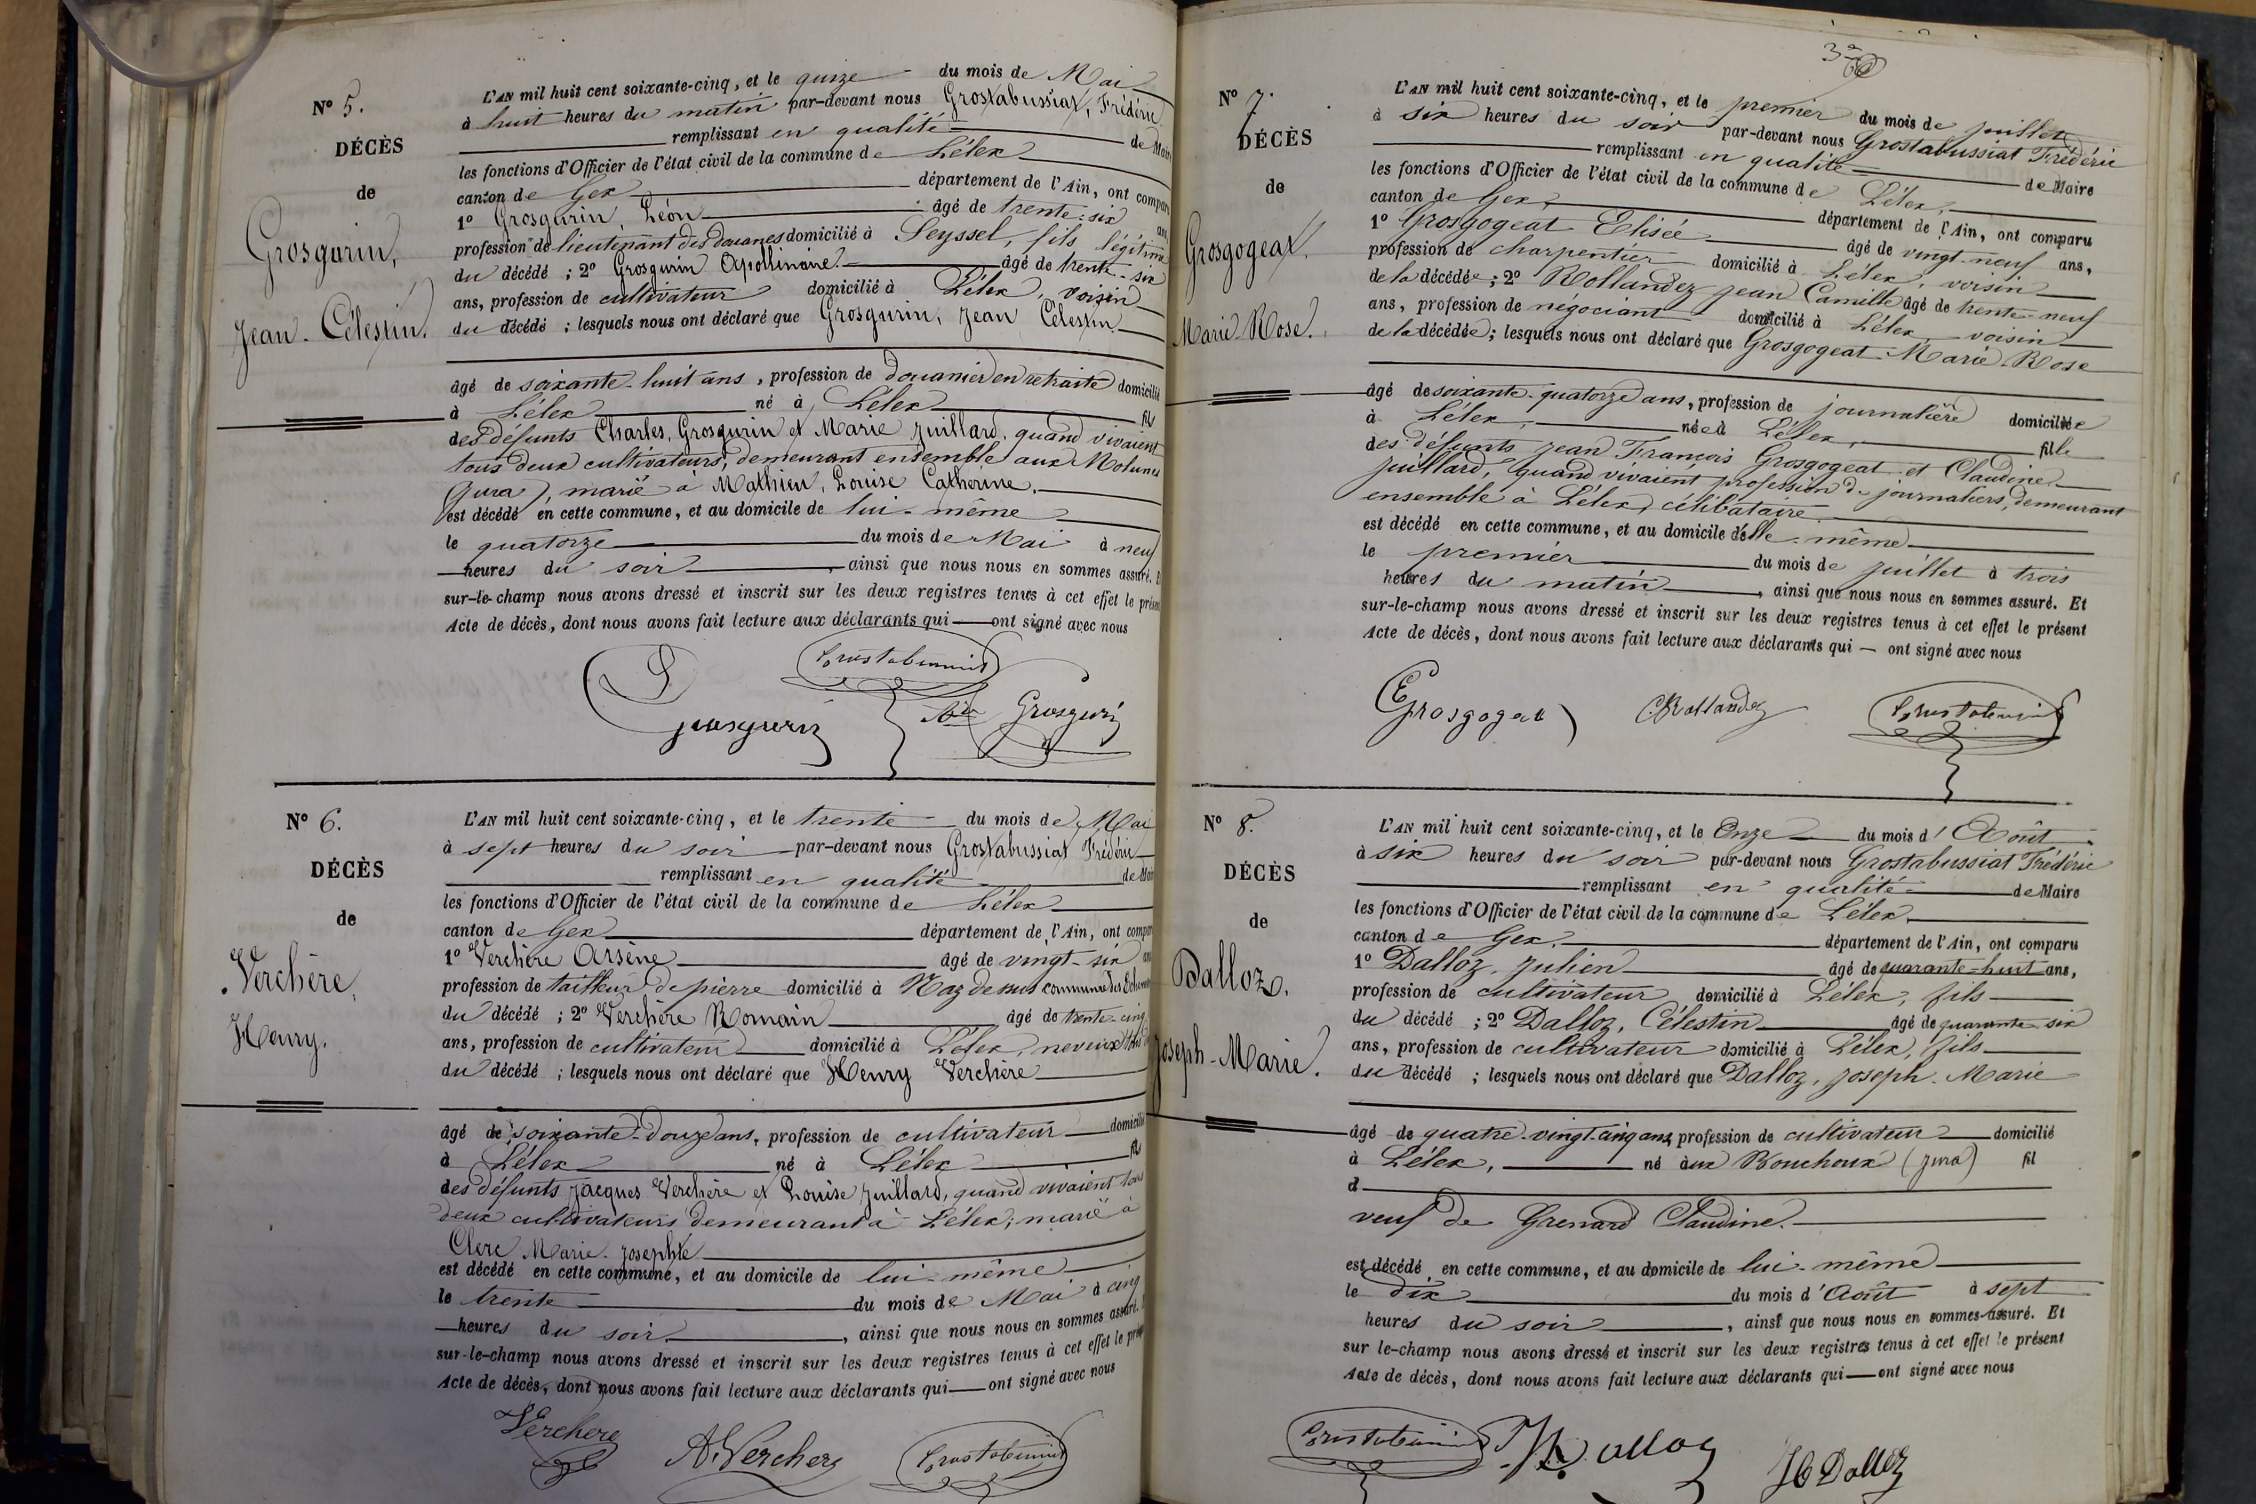 N° 5.
DÉCÈS
de
Grosgurin,
Jean-Célestin.
L'AN mil huit cent soixante-cinq, et le quinze du mois de Mai
à huit heures du matin par-devant nous Grostabussiat, Frédéric
remplissant en qualité de Maire
les fonctions d'Officier de l'état civil de la commune de Lélex
canton de Gex département de l'Ain, ont comparu
1° Grosgurin, Léon âgé de trente-six ans
profession de lieutenant des douanes domicilié à Seyssel, fils légitime
du décédé ; 2° Grosgurin Apollinaire. âgé de trente-six
ans, profession de cultivateur domicilié à Lélex, voisin
du décédé ; lesquels nous ont déclaré que Grosgurin, Jean Célestin.
âgé de soixante-huit ans, profession de douanier en retraite domicilié
à Lélex né à Lélex fils
des défunts Charles, Grosgurin et Marie Juillard, quand vivaient
tous deux cultivateurs, demeurant ensemble aux Molunes
(Jura), marié à Mathieu, Louise Catherine.
est décédé en cette commune, et au domicile de lui-même
le quatorze du mois de Mai à neuf
heures du soir, ainsi que nous nous en sommes assuré. Et
sur-le-champ nous avons dressé et inscrit sur les deux registres tenus à cet effet le présent
Acte de décès, dont nous avons fait lecture aux déclarants qui ont signé avec nous
Grostabussiat
L Grosgurin
Grosgurin
N° 6.
DÉCÈS
de
Verchère,
Henry.
L'AN mil huit cent soixante-cinq, et le trente du mois de Mai
à sept heures du soir par-devant nous Grostabussiat Frédéric
remplissant en qualité de Maire
les fonctions d'Officier de l'état civil de la commune de Lélex
canton de Gex département de l'Ain, ont comparu
1° Verchère Arsène âgé de vingt-six ans
profession de tailleur de pierre domicilié à Naz dessus commune des
du décédé ; 2° Verchère Romain âgé de trente-cinq
ans, profession de cultivateur domicilié à Lélex, neveux
du décédé ; lesquels nous ont déclaré que Henry Verchère
âgé de soixante-douze ans, profession de cultivateur domicilié
à Lélex né à Lélex fils
des défunts Jacques Verchère et Louise Juillard, quand vivaient tous
deux cultivateurs demeurant à Lélex ; marié à
Clerc Marie-Josephte
est décédé en cette commune, et au domicile de lui-même
le trente du mois de Mai à cinq
heures du soir, ainsi que nous nous en sommes assuré. Et
sur-le-champ nous avons dressé et inscrit sur les deux registres tenus à cet effet le présent
Acte de décès, dont nous avons fait lecture aux déclarants qui ont signé avec nous
Verchere
A. Verchere
Grostabussiat
N° 7.
DÉCÈS
de
Grosgogeat.
Marie-Rose.
L'AN mil huit cent soixante-cinq, et le premier du mois de juillet
à six heures du soir par-devant nous Grostabussiat Frédéric
remplissant en qualité de Maire
les fonctions d'Officier de l'état civil de la commune de Lélex,
canton de Gex, département de l'Ain, ont comparu
1° Grosgogeat Elisée âgé de vingt-neuf ans,
profession de charpentier domicilié à Lélex, voisin
de la décédée ; 2° Rollandez Jean Camille âgé de trente-neuf
ans, profession de négociant domicilié à Lélex voisin
de la décédée ; lesquels nous ont déclaré que Grosgogeat Marie-Rose
âgé de soixante-quatorze ans, profession de journalière domiciliée
à Lélex, née à Lélex, fille
des défunts Jean François Grosgogeat et Claudine
Juillard, quand vivaient profession de journaliers, demeurant
ensemble à Lélex, célibataire
est décédé en cette commune, et au domicile d'elle-même
le premier du mois de juillet à trois
heures du matin, ainsi que nous nous en sommes assuré. Et
sur-le-champ nous avons dressé et inscrit sur les deux registres tenus à cet effet le présent
Acte de décès, dont nous avons fait lecture aux déclarants qui — ont signé avec nous
E Grosgogeat
C. Rollandez
Grostabussiat
N° 8.
DÉCÈS
de
Dalloz,
Joseph-Marie.
L'AN mil huit cent soixante-cinq, et le Onze du mois d'Août
à six heures du soir par-devant nous Grostabussiat Frédéric
remplissant en qualité de Maire
les fonctions d'Officier de l'état civil de la commune de Lélex,
canton de Gex, département de l'Ain, ont comparu
1° Dalloz, Julien âgé de quarante-huit ans,
profession de cultivateur domicilié à Lélex, fils
du décédé ; 2° Dalloz, Célestin âgé de quarante-six
ans, profession de cultivateur domicilié à Lélex, fils
du décédé ; lesquels nous ont déclaré que Dalloz, Joseph-Marie
âgé de quatre-vingt-cinq ans, profession de cultivateur domicilié
à Lélex, né aux Bouchoux (Jura) fil
d
veuf de Grenard Claudine.
est décédé en cette commune, et au domicile de lui-même
le dix du mois d'Août à sept
heures du soir, ainsi que nous nous en sommes assuré. Et
sur le-champ nous avons dressé et inscrit sur les deux registres tenus à cet effet le présent
Acte de décès, dont nous avons fait lecture aux déclarants qui — ont signé avec nous
Grostabussiat
Dalloz
Dalloz